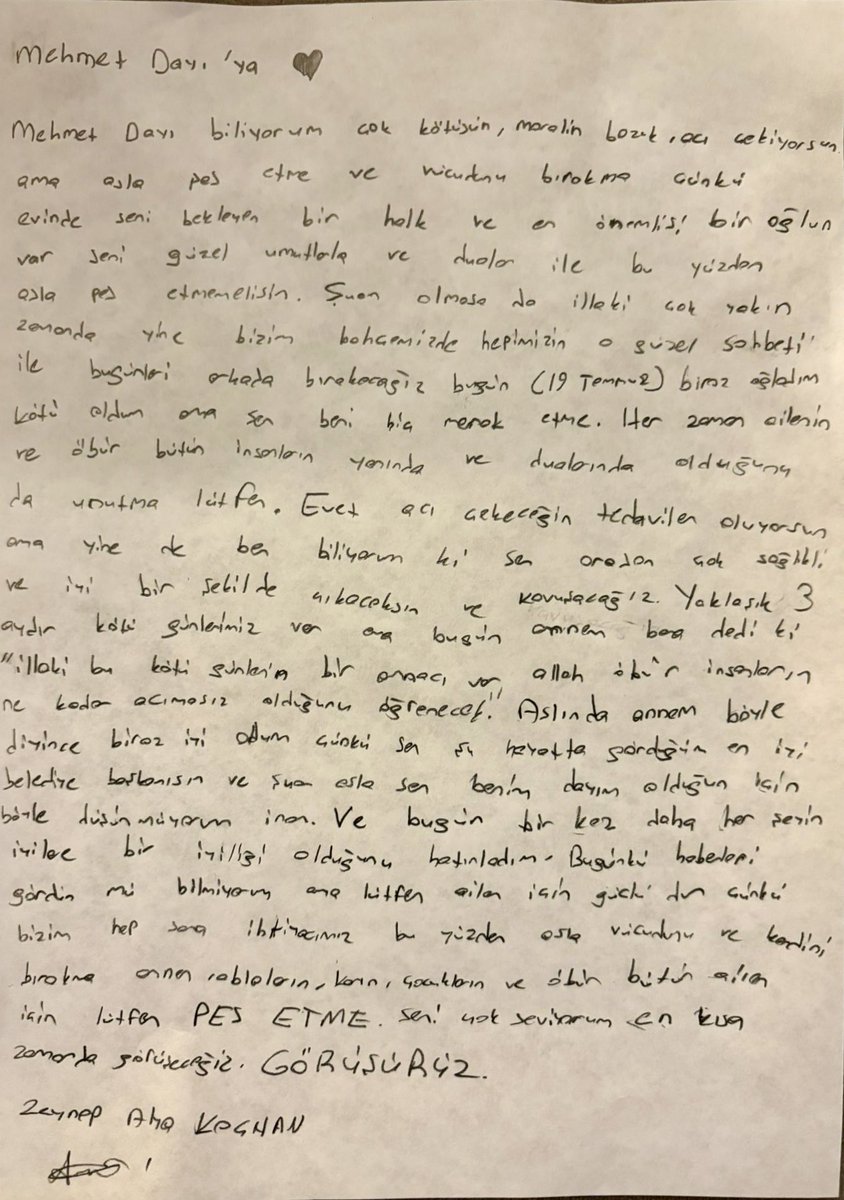 Mehmet Dayı 'ya
Mehmet Dayı biliyorum çok kötüsün, moralin bozuk, acı çekiyorsun
ama asla pes etme ve vücudunu bırakma çünkü
evinde seni bekleyen bir halk ve en önemlisi bir oğlun
var seni güzel umutlarla ve dualar ile bu yüzden
asla pes etmemelisin. Şuan olmasa da illaki çok yakın
zamanda yine bizim bahçemizde hepimizin o güzel sohbeti
ile bugünleri arkada bırakacağız bugün (19 Temmuz) biraz ağladım
kötü oldum ama sen beni hiç merak etme. Her zaman ailenin
ve öbür bütün insanların yanında ve dualarında olduğunu
da unutma lütfen. Evet acı çekeceğin tedaviler oluyorsun
ama yine de ben biliyorum ki sen oradan çok sağlıklı
ve iyi bir şekilde çıkacaksın ve kavuşacağız. Yaklaşık 3
aydır kötü günlerimiz var ama bugün annem bana dedi ki
"illaki bu kötü günlerin bir amacı var allah öbür insanların
ne kadar acımasız olduğunu öğrenecek". Aslında annem böyle
diyince biraz iyi oldum çünkü sen şu hayatta gördüğüm en iyi
belediye başkanısın ve şuan asla sen benim dayım olduğun için
böyle düşünmüyorum inan. Ve bugün bir kez daha her şeyin
iyilere bir iyiliği olduğunu hatırladım. Bugünkü haberleri
gördün mü bilmiyorum ama lütfen ailen için güçlü dur çünkü
bizim hep sana ihtiyacımız bu yüzden asla vücudunu ve kendini
bırakma annen, ablaların, karın, çocukların ve öbür bütün ailen
için lütfen PES ETME. Seni çok seviyorum en kısa
zamanda görüşeceğiz. GÖRÜŞÜRÜZ.
Zeynep